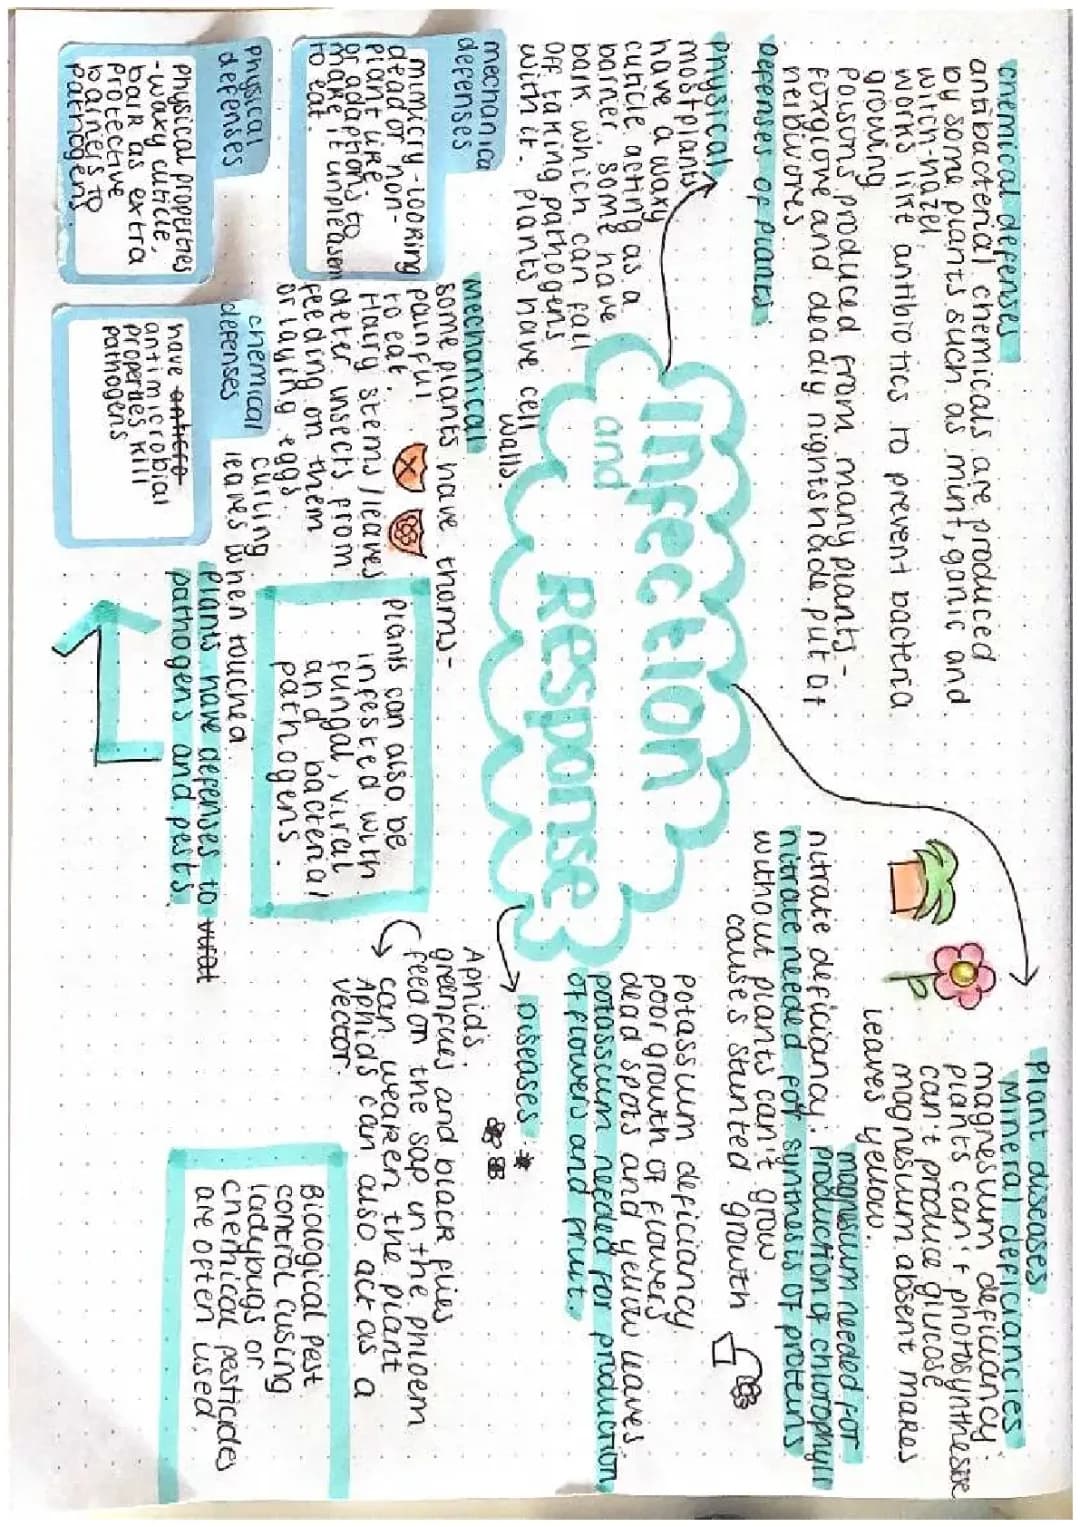 chemical defenses
antibacterial chemicals are produced
by some plants such as mint, garlic and
witch-hazel.
works like antibiotics to prevent bacteria
growing
Poisons produced from many plants -
foxglove and deadly nightshade put of
herbivores.
Defenses of plants:
physical
most plants
have a waxy
cuticle acting as a
barrier, some have
bark which can fall
off taking pathogens
with it. plants have cell
walls.
Infection
and
Response
mechanical
some plants have thorns -
painful
to eat.
Hairy stems/leaves
deter insects from
feeding on them
or laying eggs.
curling
leaves when touched
mechanica
defenses
mimicry - looking
dead or non-
plant like.
or adaptions to
make it unpleasen
to eat.
physical
defenses
physical properties
- waxy cuticle,
bark as extra
protective
barriers to
pathogens
chemical
defenses
have
antimicrobial
properties kill
pathogens
plants can also be
infested with
fungal, viral
and bacterial
pathogens.
plants have defenses to
pathogens and pests.
Plant diseases.
Mineral deficiancies
magnesium deficiancy:
plants can't photosynthesise
can't produce glucose
magnesium absent makes
leaves yellow.
magnesium needed for
production of chlorophyll
nitrate deficiancy.
nitrate needed for synthesis of proteins
without plants can't grow
causes stunted growth
potassium deficiancy
poor growth of flowers
dead spots and yellow leaves
potassium needed for production
of flowers and fruit.
Diseases
Aphids.
greenflies and black flies
feed on the sap in the phloem
can weaken the plant
Aphids can also act as a
vector.
Biological pest
control cusing
ladybugs or
chemical pesticides
are often used